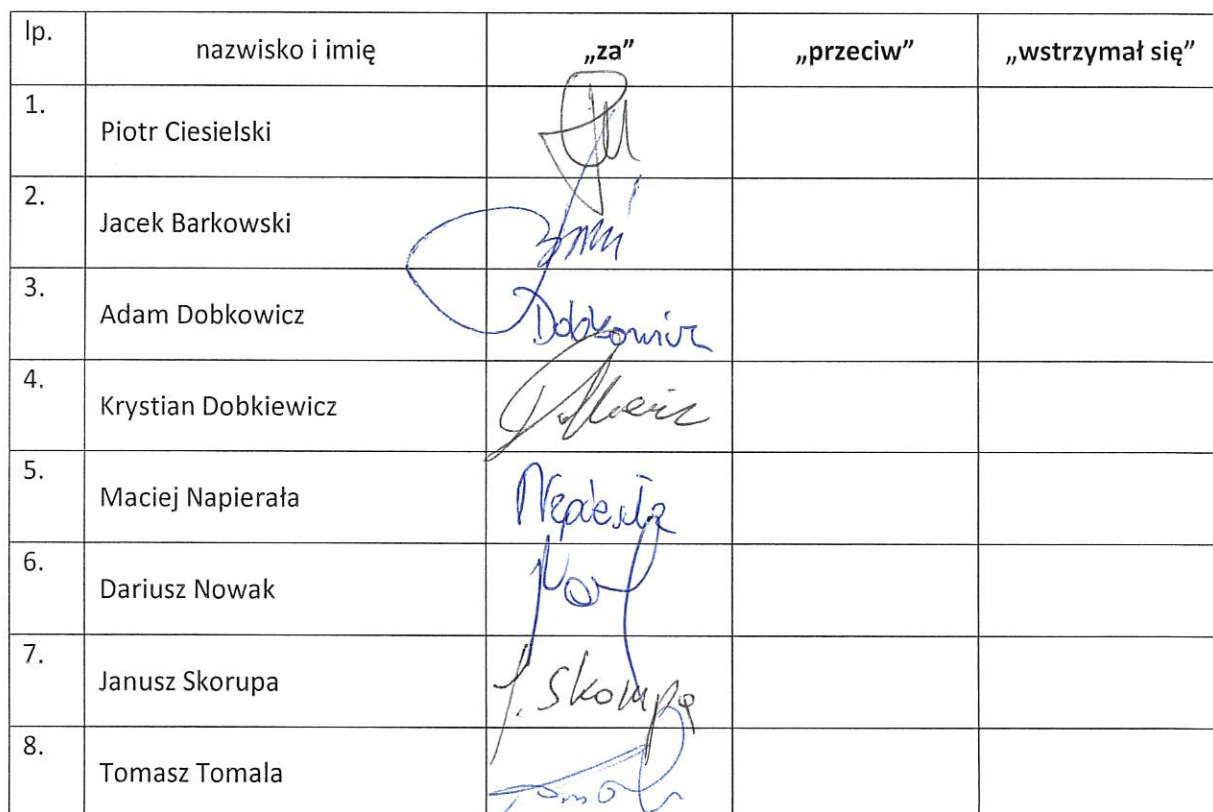 lp. nazwisko i imię „za” „przeciw” „wstrzymał się”
1. Piotr Ciesielski
2. Jacek Barkowski
3. Adam Dobkowicz Dobkowicz
4. Krystian Dobkiewicz
5. Maciej Napierała Napierała
6. Dariusz Nowak
7. Janusz Skorupa J. Skorupa
8. Tomasz Tomala